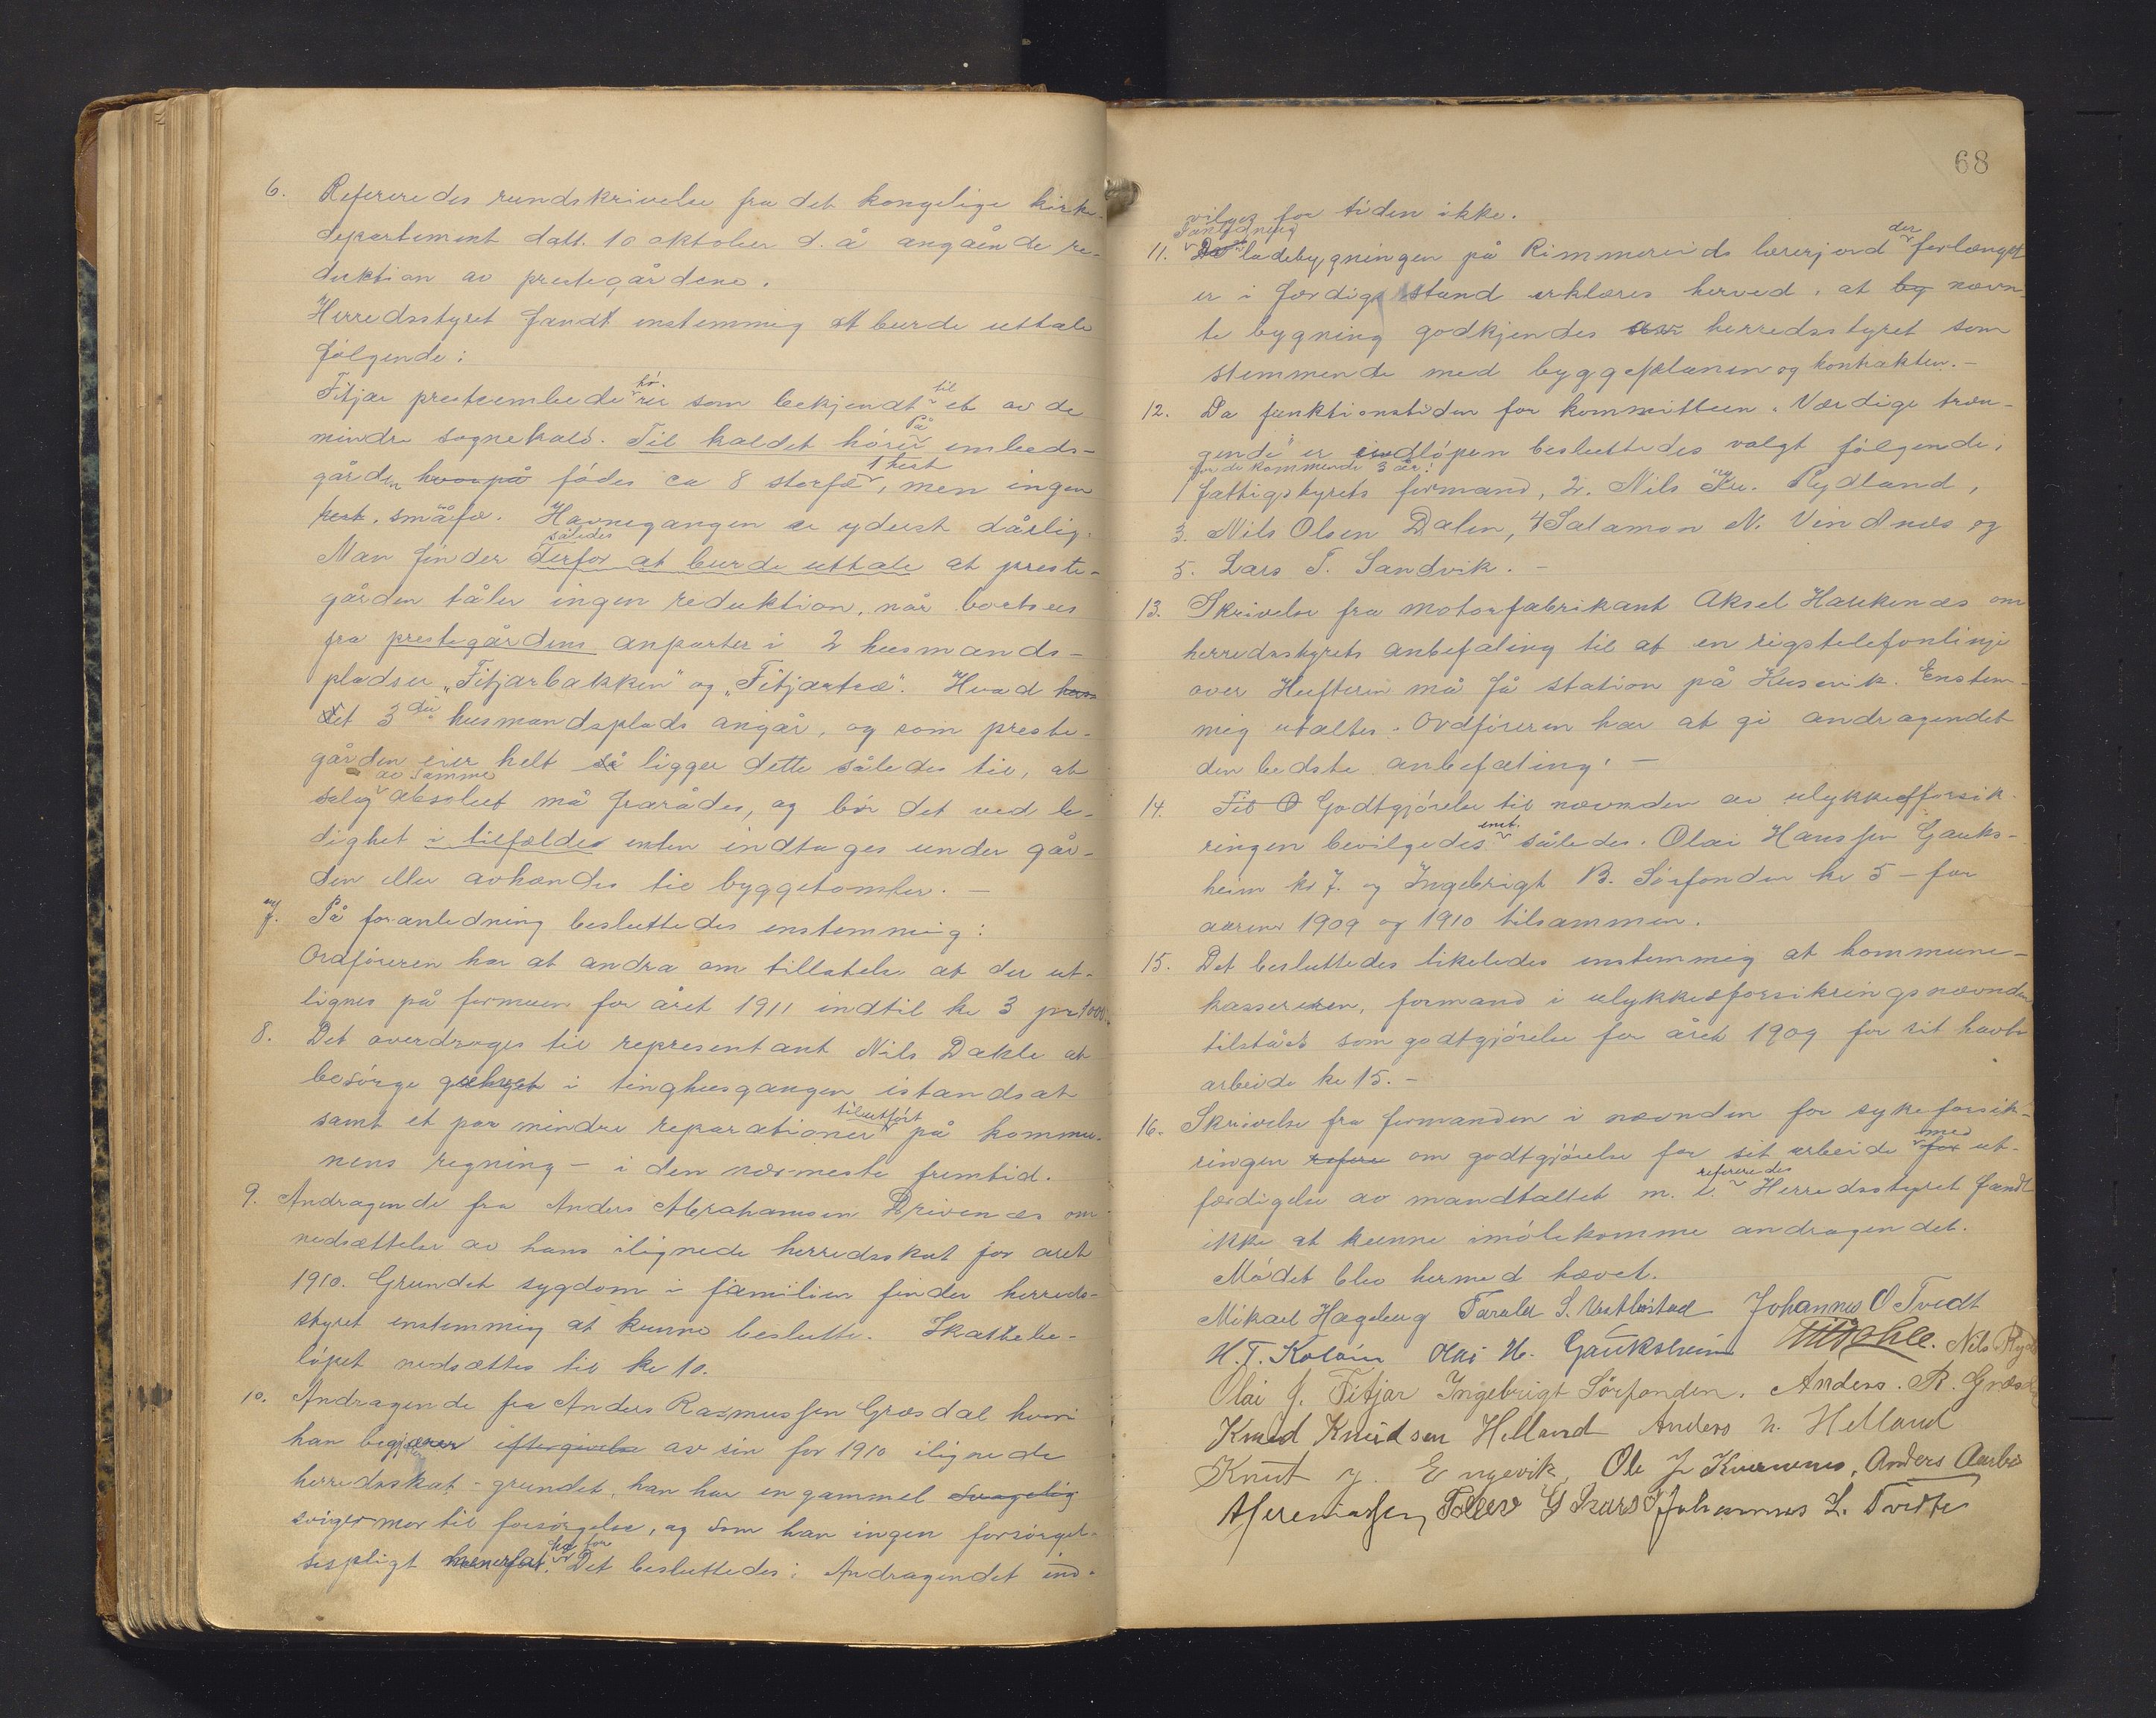 6. Refereredes rundskrivelse fra det kongelige kirke-
departement datt. 10 oktober d. å angående re-
duktion av prestegårdene.
Herredsstyret fandt enstemmig at burde uttale
følgende:
Fitjar presteembede hø-
rer som bekjendt til et av de
mindre sognekald. Til kaldet hører embeds-
gården hvorpå på fødes ca 8 storfæ, 1 hest men ingen
hest, småfæ. Havnegangen er yderst dårlig.
Man finder således derfor at burde uttale at preste-
gården tåler ingen reduktion, når bortsees
fra prestegårdens anparter i 2 husmands-
pladser „Fitjarbakken" og „Fitjartræ". Hvad
det 3die husmandsplads angår, og som preste-
gården eier helt så ligger dette således til, at
salg av samme absolut må frarådes, og bør det ved le-
dighet i tilfælde enten indtages under går-
den eller avhændes til byggetomter. —
7. På foranledning besluttedes enstemmig:
Ordføreren har at andra om tillatelse at der ut-
lignes på formuen for året 1911 indtil kr 3 pr 1000.
8. Det overdrages til representant Nils Dåkle at
besørge gulvet i tinghusgangen istandsat
samt et par mindre reparationer tilutført på kommu-
nens regning – i den nærmeste fremtid.
9. Andragende fra Anders Abrahamsen Drivenæs om
nedsættelse av hans ilignede herredsskat for året
1910. Grundet sygdom i familien finder herreds-
styret enstemmig at kunne beslutte. Skattebe-
løpet nedsættes til kr 10.
10. Andragende fra Anders Rasmussen Græsdal hvori
han begjærer eftergivelse av sin for 1910 ilignede
herredsskat – grundet, han har en gammel svagelig
svigermor til forsørgelse, og som han ingen forsørgel-
sespligt har for. Det besluttedes: Andragendet ind-
68
vilges for tiden ikke.
11. I anledning ladebygningen på Rimmereids lærerjord der forlænget
er i færdig stand erklæres herved, at by nævn-
te bygning godkjendes av herredsstyret som
stemmende med byggeplanen og kontrakten. –
12. Da funktionstiden for kommitteen „Værdige træn-
gende" er indløpen besluttedes valgt følgende,
for de kommende 3 år:
1 fattigstyrets formand, 2. Nils Kr. Rydland,
3. Nils Olsen Dalen, 4 Salamon N. Vindnæs og
5. Lars T. Sandvik. –
13. Skrivelse fra motorfabrikant Aksel Haukenæs om
herredsstyrets anbefaling til at en rigstelefonlinje
over Hufteren må få station på Husevik. Enstem-
mig utaltes: Ordføreren har at gi andragendet
den bedste anbefaling! –
14. Til O Godtgjørelse til nævnden av ulykkesforsik-
ringen bevilgedes enst. således. Olai Hanssen Gauks-
heim kr 7. og Ingebrigt B. Sørfonden kr 5 – for
aarene 1909 og 1910 tilsammen.
15. Det besluttedes likeledes enstemmig at kommune-
kassereren, formand i ulykkesforsikringsnævnden
tilståes som godtgjørelse for året 1909 for sit havte
arbeide kr 15. –
16. Skrivelse fra formanden i nævnden for sykeforsik-
ringen refere om godtgjørelse for sit arbeide for med ut-
færdigelse av mandtallet m. v. refereredes Herredsstyret fandt
ikke at kunne imøtekomme andragendet.
Mødet blev hermed hævet.
Mikael Hageberg Taraler S. Vestbøstad Johannes O Tvedt
H. T. Koløin Olai H. Gauksheim Nils Ryd
Olai J. Fitjar Ingebrigt Sørfonden. Anders. R. Græsd
Knud Knudsen Helland Anders N. Helland
Knut J. Engevik, Ole J Kvernenes, Anders Aarbø
AJeremiassen, Johannes L. Tvedte